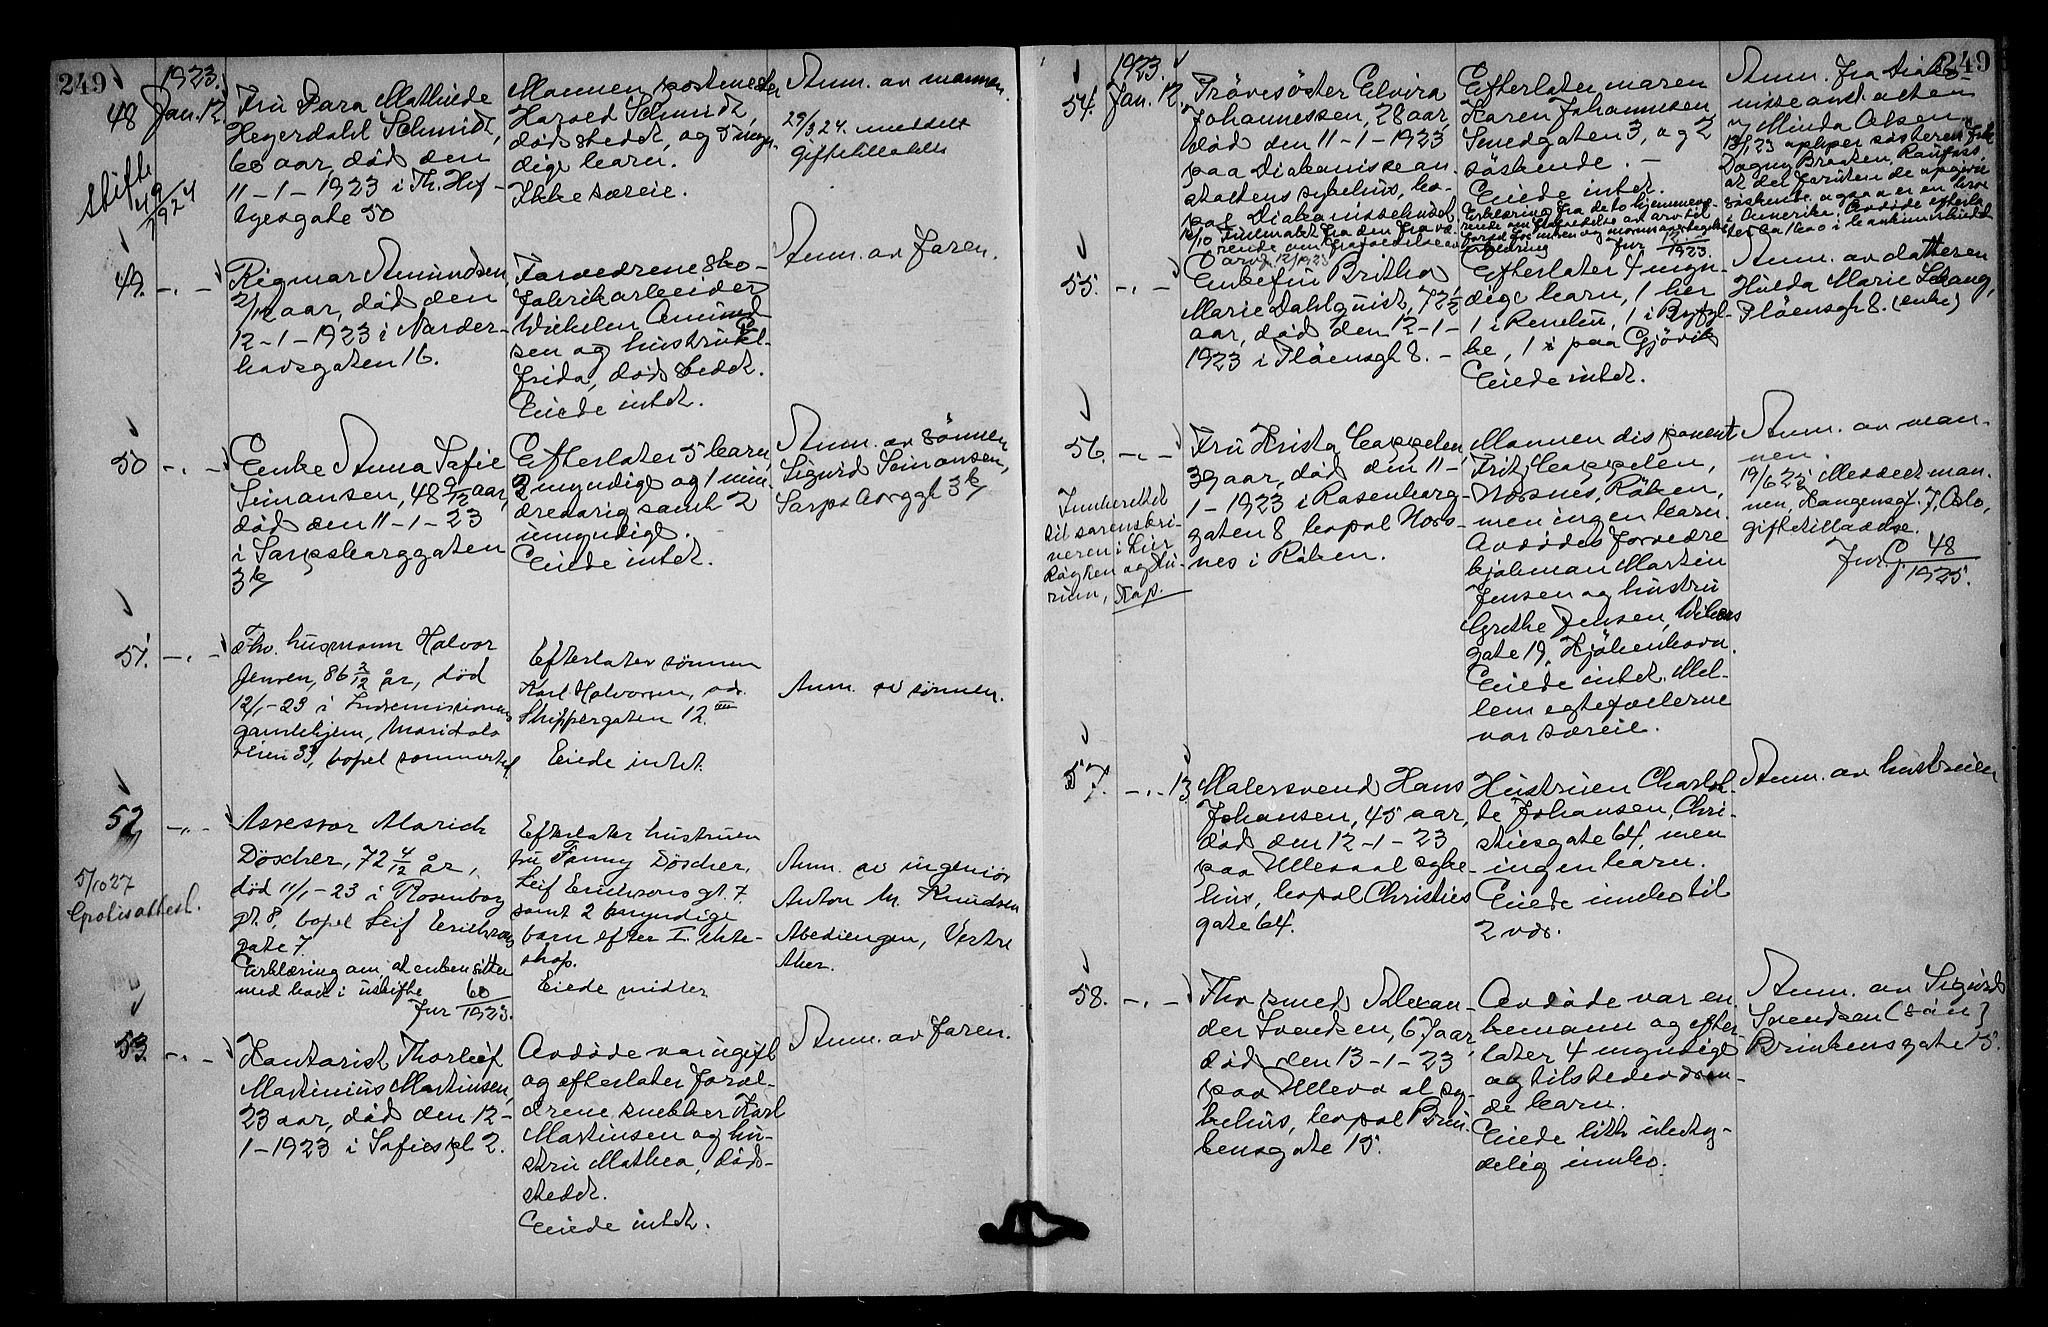 249
1923.
48 Jan. 12. Fru Sara Mathilde
Heyerdahl Schmidt,
60 aar, død den
11-1-1923 i Th. Hef-
tyesgate 50
Mannen postmester
Harald Schmidt,
dødsstedet, og 7 myn-
dige barn.
Ikke særeie.
Anm. av mannen.
29/3 24. meddelt
giftetilladelse
Skifte 49/1924
49. -"- Rigmor Amundsen,
2/12 aar, død den
12-1-1923 i Norder-
hovsgaten 16.
Forældrene sko-
fabrikarbeider
Wilhelm Amund-
sen og hustru El-
frida, dødsstedet.
Eiede intet.
Anm. av faren.
50 -"- Enke Anna Sofie
Simonsen, 48 9/12 aar,
død den 11-1-23
i Sarpsborggaten
3 b/
Efterlater 5 barn,
2 myndige og 1 min-
dreaarig samt 2
umyndige.
Eiede intet.
Anm. av sønnen
Sigurd Simonsen,
Sarpsborggt 3 b/
51. -"- Fhv. husmann Halvor
Jensen, 86 2/12 år, død
12/1-23 i Indremissionens
gamlehjem, Maridals
veien 33, bopel sammested
Efterlater sønnen
Karl Halvorsen, adr.
Skippergaten 12 III
Eiede intet.
Anm. av sønnen.
52 -"- Assessor Alarich
Döscher, 72 4/12 år,
død 11/1-23 i Rosenborg
gt. 8, bopel Leif Eriksons
gate 7.
Erklæring om, at enken sitter
med boet i uskifte
Jur 60/1923.
Efterlater hustruen
fru Fanny Döscher,
Leif Eriksons gt. 7.
samt 2 myndige
barn efter I. ekte-
skap.
Eiede midler
Anm. av ingeniør
Anton M. Knudsen
Abediengen, Vestre
Aker.
5/10 27
Gratisattest.
53. -"- Kontorist Thorleif
Martinius Martinsen,
23 aar, død den 12-
1-1923 i Sofies pl 2.
Avdøde var ugift
og efterlater foræl-
drene, snekker Karl
Martinsen og hu-
stru Mathea, døds-
stedet.
Eiede intet.
Anm. av faren.
249
1923.
54. Jan. 12. Prøvesøster Elvira
Johannessen, 28 aar,
død den 11-1-1923
paa Diakonissean-
staltens sykehus, bo-
pæl Diakonissehuset.
Efterlater moren
Karen Johannesen
Smedgaten 3, og 2
søskende. -
Eiede intet.
Jur 12/1923.
Anm. fra Diako-
nisseanstalten
v/ Minda Olsen
55. -"- Enkefru Britha
Marie Dahlquist, 72 1/2
aar, død den 12-1-
1923 i Pløensgt 8. -
Efterlater 4 myn-
dige barn, 1 her
1 i Renalin, 1 i Ryfyl-
ke, 1 paa Gjøvik
Eiede intet.
Anm. av datteren
Hulda Marie Schang,
Pløensgt 8. (enke)
56. -"- Fru Krista Cappelen,
39 aar, død den 11-
1-1923 i Rosenborg-
gaten 8 bopæl Nors-
nes i Røken.
Mannen disponent
Fritz Cappelen,
Norsnes, Røken,
men ingen barn.
Avdødes forældre
kjøbmann Martin
Jensen og hustru
Grethe Jensen, Wibers
gate 19, Kjøbenhavn.
Eiede intet. Mel-
lem egtefællerne
var særeie.
Anm. av man-
nen.
19/6 25 Meddelt man-
nen, Langensgt. 7, Oslo,
giftetilladelse.
Jur 48/1925.
Innberettet
til sorenskri-
veren i Lier
Røyken og Hu-
rum,
57. -"- 13. Malersvend Hans
Johansen, 45 aar,
død den 12-1-23
paa Ullevaal syke-
hus, bopæl Christies
gate 64.
Hustruen Charlot-
te Johansen, Chri-
stiesgate 64, men
ingen barn.
Eiede innbo til
2 vær.
Anm. av hustruen
58. -"- Fhv smed Alexan-
der Svendsen, 67 aar,
død den 13-1-23
paa Ullevaal sy-
kehus, bopæl Brin-
kensgate 15.
Avdøde var en-
kemann og efter-
later 4 myndige
og tilstedeværen-
de barn.
Eiede litt ubety-
delig innbo.
Anm. av Sigurd
Svendsen (søn)
Brinkensgate 15.